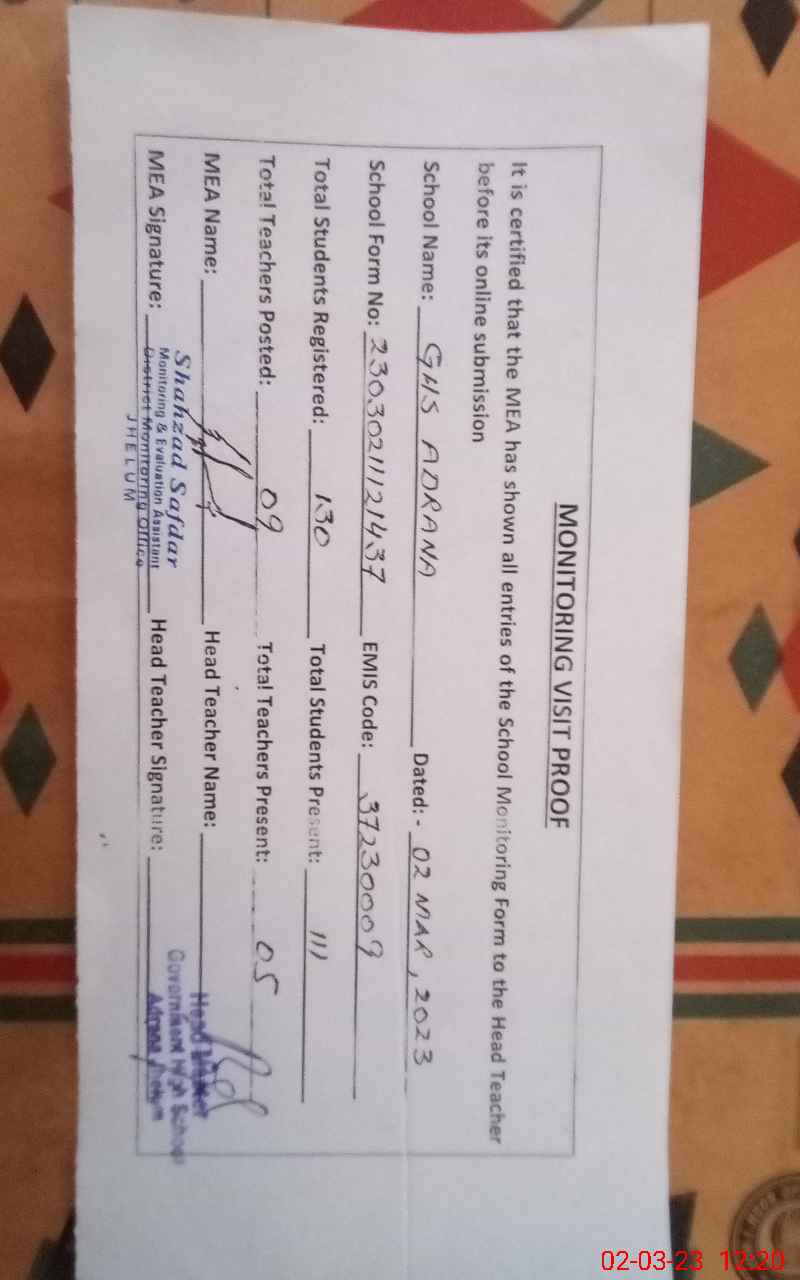 MONITORING VISIT PROOF
It is certified that the MEA has shown all entries of the School Monitoring Form to the Head Teacher
before its online submission
School Name: GHS ADRANA Dated: - 02 MAR, 2023
School Form No: 23030211121437 EMIS Code: 37230009
Total Students Registered: 130 Total Students Present: 111
Total Teachers Posted: 09 Total Teachers Present: 05
MEA Name: Head Teacher Name:
MEA Signature: Head Teacher Signature:
Shahzad Safdar
Monitoring & Evaluation Assistant
District Monitoring Office
JHELUM
Head Master
Government High School
Adrana Jhelum
02-03-23 12:20